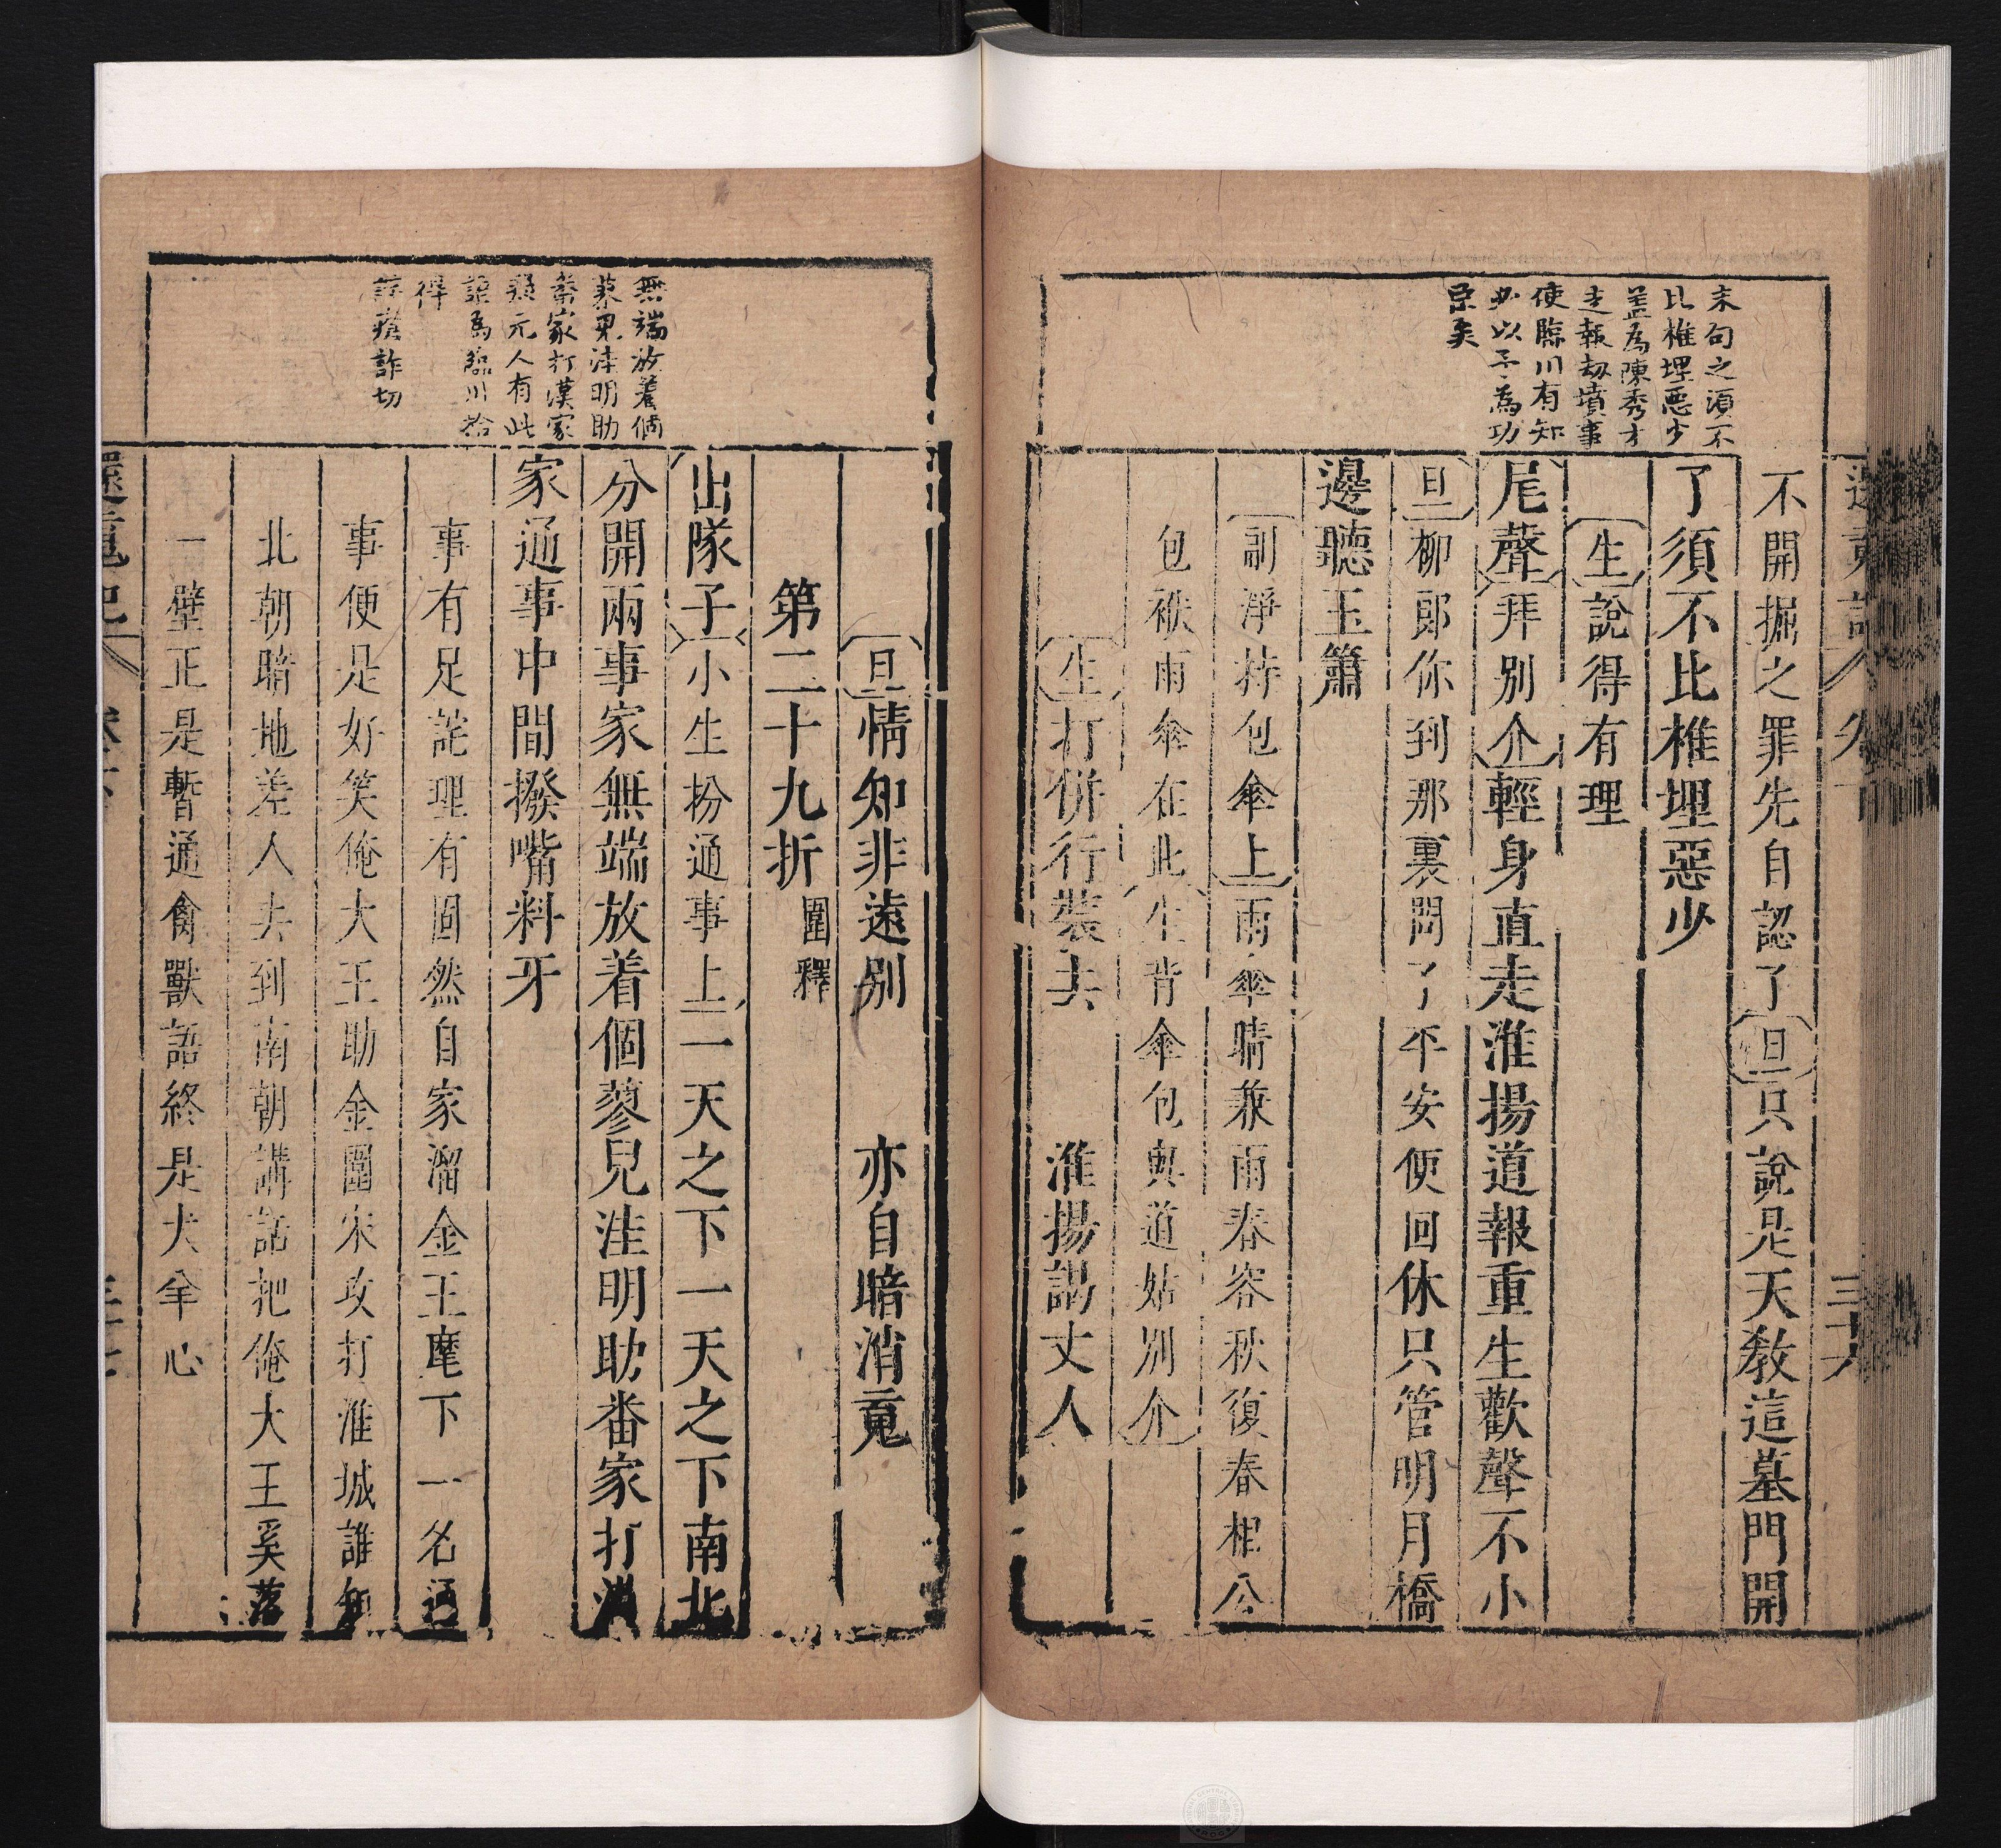 末句之須不
比椎埋惡少
盖為陳秀才
走報劫墳事
使臨川有知
必以予為功
臣矣
不開掘之罪先自認了旦只說是天教這墓門開
了須不比椎埋惡少
生說得有理
尾聲拜別介輕身直走淮揚道報重生歡聲不小
旦柳郎你到那裏問了平安便回休只管明月橋
邊聽玉簫
副淨持包傘上雨傘晴兼雨春容秋復春相公
包袱雨傘在此生背傘包與道姑別介
生打併行裝去　淮揚謁丈人
無端放着個
蓼兒洼明助
番家打漢家
疑元人有此
語為臨川拾
得
詫瘡詐切
旦情知非遠別　亦自暗消䰟
第二十九折　圍釋
出隊子小生扮通事上一天之下一天之下南北
分開兩事家無端放着個蓼兒洼明助番家打漢
家通事中間撥嘴料牙
事有足詫理有固然自家溜金王麾下一名通
事便是好笑俺大王助金圍宋攻打淮城誰知
北朝暗地差人去到南朝講話把俺大王奚落
一壁正是暫通禽獸語終是犬羊心
還魂記　卷下　三十七